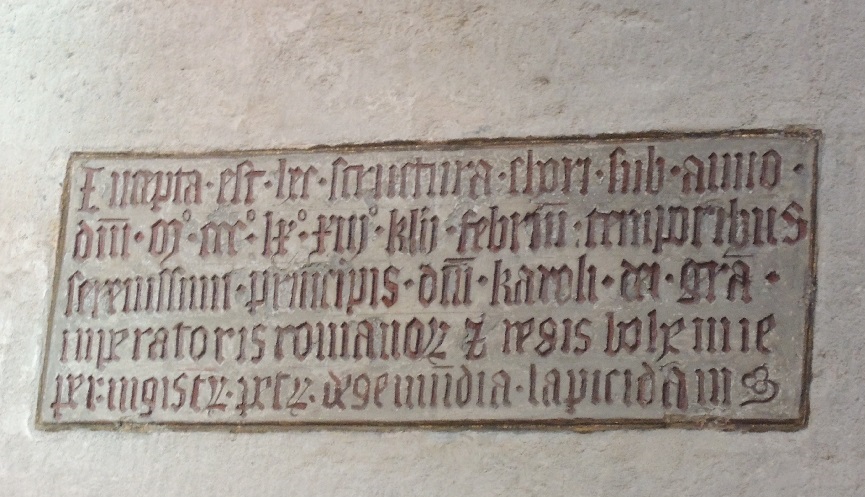 Incepta · est · hec · structura · chori · sub · anno ·
dn̄i · mº · cccº · lxº · xiijº · klij · februm̄ · temporibus
serenissimi · principis · dn̄i · karoli · dei · grā ·
imperatoris romanoꝝ ⁊ regis bohemie
per · mgistꝝ · petꝝ · de gemūdia · lapicidam